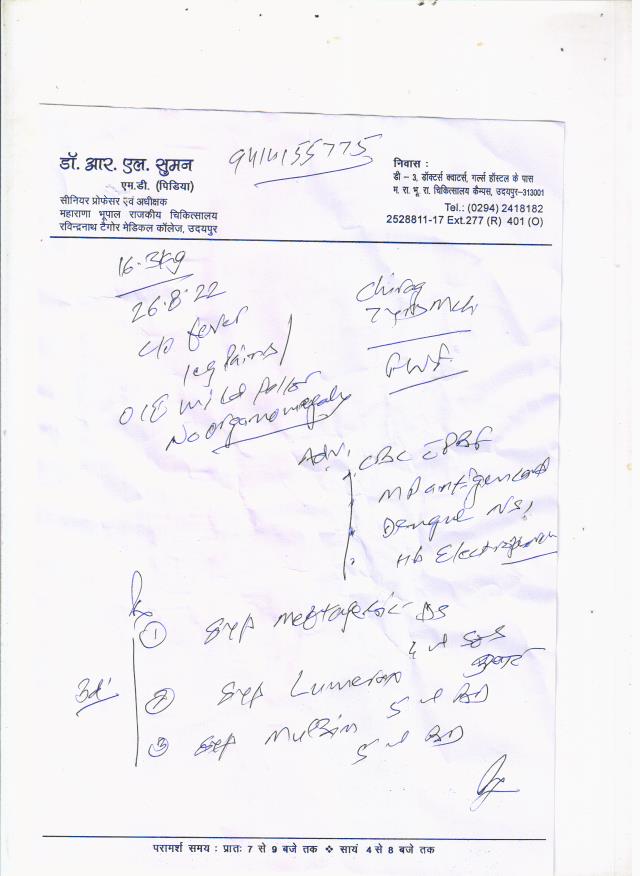 डॉ. आर. एल. सुमन
एम.डी. (पिडिया)
सीनियर प्रोफेसर एवं अधीक्षक
महाराणा भूपाल राजकीय चिकित्सालय
रविन्द्रनाथ टैगोर मेडिकल कॉलेज, उदयपुर
9414155775
निवास :
डी - 3, डॉक्टर्स क्वाटर्स, गर्ल्स हॉस्टल के पास
म. रा. भू. रा. चिकित्सालय कैम्पस, उदयपुर-313001
Tel.: (0294) 2418182
2528811-17 Ext.277 (R) 401 (O)
16.3kg
26.8.22
c/o fever
leg pains
O/E mild pallor
No organomegaly
Chirag
7 yrs Mch
Adv.
CBC c PBF
MP antigen card
Dengue NS1
Hb Electrophoresis
Rx
① Syp Meftagesic DS
4 ml SOS
3d
② Syp
5 ml BD
③ Syp
5 ml BD
परामर्श समय : प्रातः 7 से 9 बजे तक ❖ सायं 4 से 8 बजे तक